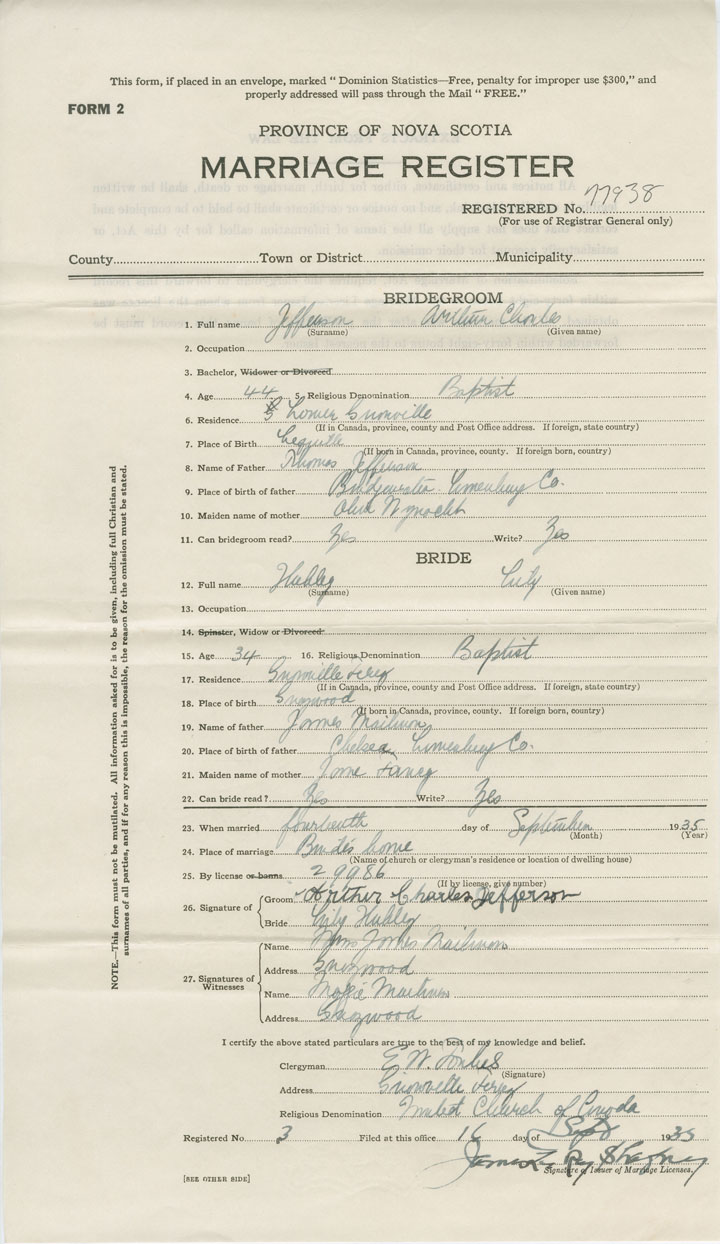 This form, if placed in an envelope, marked “ Dominion Statistics—Free, penalty for improper use $300,” and
properly addressed will pass through the Mail “ FREE.”
FORM 2
PROVINCE OF NOVA SCOTIA
MARRIAGE REGISTER
REGISTERED No. 77938
(For use of Registrar General only)
County Town or District Municipality
BRIDEGROOM
1. Full name Jefferson Arthur Charles
(Surname) (Given name)
2. Occupation
3. Bachelor, Widower or Divorced
4. Age 44 5. Religious Denomination Baptist
6. Residence Lower
(If in Canada, province, county and Post Office address. If foreign, state country)
7. Place of Birth
(If born in Canada, province, county. If foreign born, country)
8. Name of Father Thomas Jefferson
9. Place of birth of father Bridgewater Lunenburg Co.
10. Maiden name of mother
11. Can bridegroom read? Yes Write? Yes
BRIDE
12. Full name Hubley Lily
(Surname) (Given name)
13. Occupation
14. Spinster, Widow or Divorced
15. Age 34 16. Religious Denomination Baptist
17. Residence Ferry
(If in Canada, province, county and Post Office address. If foreign, state country)
18. Place of birth
(If born in Canada, province, county. If foreign born, country)
19. Name of father James Mailman
20. Place of birth of father Chelsea Lunenburg Co.
21. Maiden name of mother Jane
22. Can bride read? Yes Write? Yes
23. When married fourteenth day of September 1935
(Month) (Year)
24. Place of marriage Bride's home
(Name of church or clergyman's residence or location of dwelling house)
25. By license or banns 29986
(If by license, give number)
26. Signature of Groom Arther Charles Jefferson
Bride Lily Hubley
27. Signatures of Witnesses Name Mrs James Mailman
Address
Name Mailman
Address
I certify the above stated particulars are true to the best of my knowledge and belief.
Clergyman E. W. Forbes
(Signature)
Address Ferry
Religious Denomination United Church of Canada
Registered No. 3 Filed at this office 16 day of Sept 1935
Signature of Issuer of Marriage Licenses.
[SEE OTHER SIDE]
NOTE.—This form must not be mutilated. All information asked for is to be given, including full Christian and
surnames of all parties, and if for any reason this is impossible, the reason for the omission must be stated.